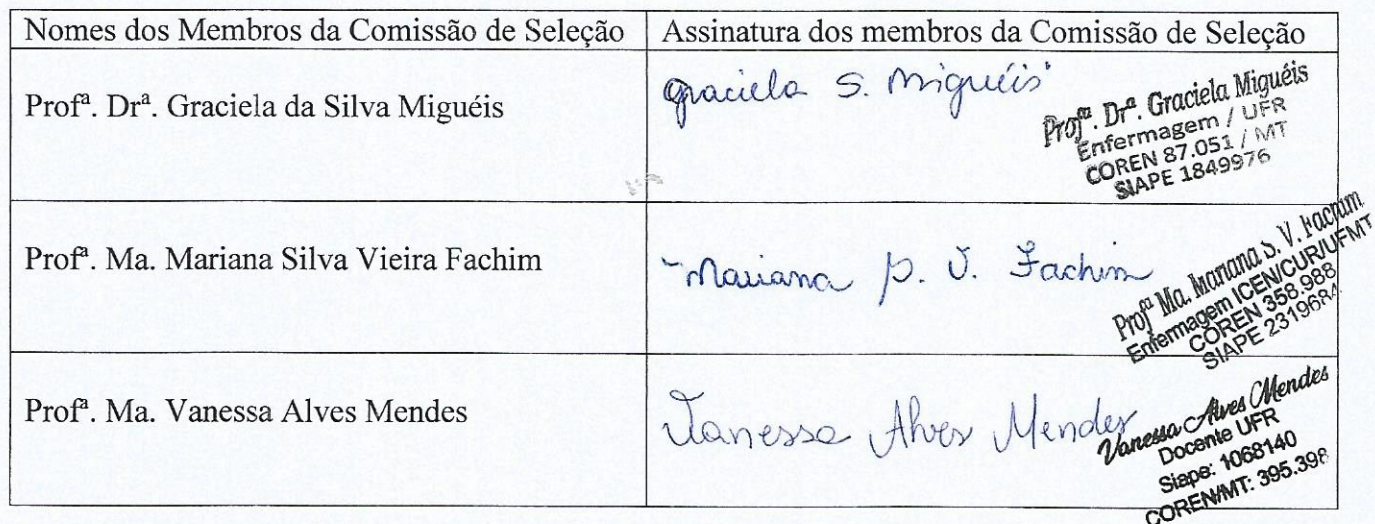 Nomes dos Membros da Comissão de Seleção
Assinatura dos membros da Comissão de Seleção
Profª. Drª. Graciela da Silva Miguéis
Graciela S. Miguéis
Profª. Drª. Graciela Miguéis
Enfermagem / UFR
COREN 87.051 / MT
SIAPE 1849976
Profª. Ma. Mariana Silva Vieira Fachim
Mariana S. V. Fachim
Profª Ma. Mariana S. V. Fachim
Enfermagem ICEN/CUR/UFMT
COREN 358.988
SIAPE 2319684
Profª. Ma. Vanessa Alves Mendes
Vanessa Alves Mendes
Vanessa Alves Mendes
Docente UFR
Siape: 1068140
COREN/MT: 395.398